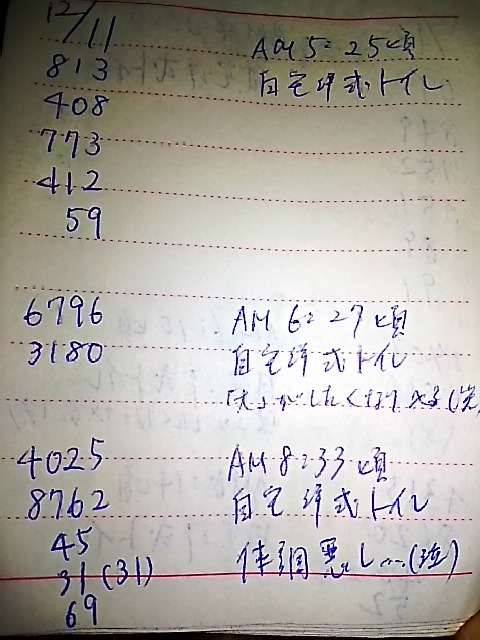 12/11
813 AM 5:25頃
408 自宅洋式トイレ
773
412
59
6796 AM 6:27頃
3180 自宅洋式トイレ
「大」がしたくなり
4025 AM 8:33頃
8762 自宅洋式トイレ
45
31(31) 体調悪し…(泣)
69